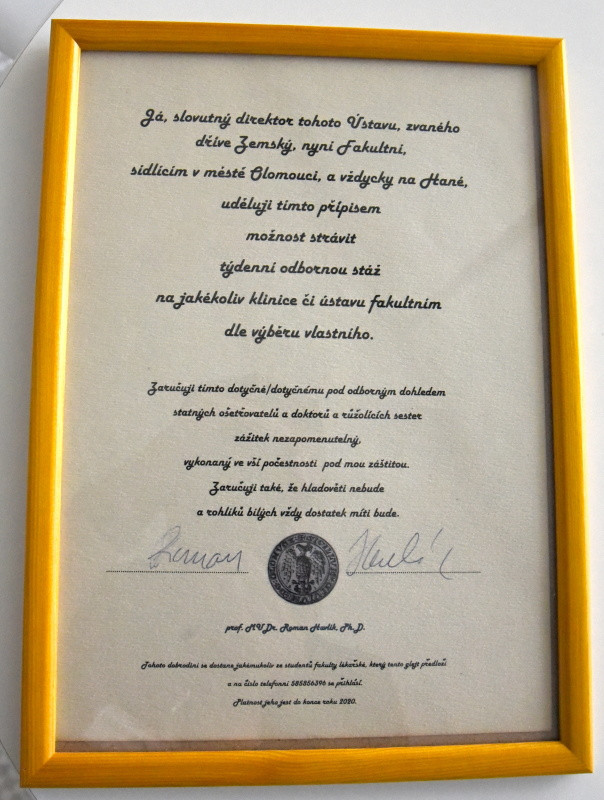 Já, slovutný direktor tohoto Ústavu, zvaného
dříve Zemský, nyní Fakultní,
sídlícím v městě Olomouci, a vždycky na Hané,
uděluji tímto přípisem
možnost strávit
týdenní odbornou stáž
na jakékoliv klinice či ústavu fakultním
dle výběru vlastního.
Zaručuji tímto dotyčné/dotyčnému pod odborným dohledem
statných ošetřovatelů a doktorů a růžolících sester
zážitek nezapomenutelný,
vykonaný ve vší počestnosti pod mou záštitou.
Zaručuji také, že hladověti nebude
a rohlíků bílých vždy dostatek míti bude.
Roman Havlík
prof. MUDr. Roman Havlík, Ph.D.
Tohoto dobrodiní se dostane jakémukoliv ze studentů fakulty lékařské, který tento glejt předloží
a na číslo telefonní 585856396 se přihlásí.
Platnost jeho jest do konce roku 2020.